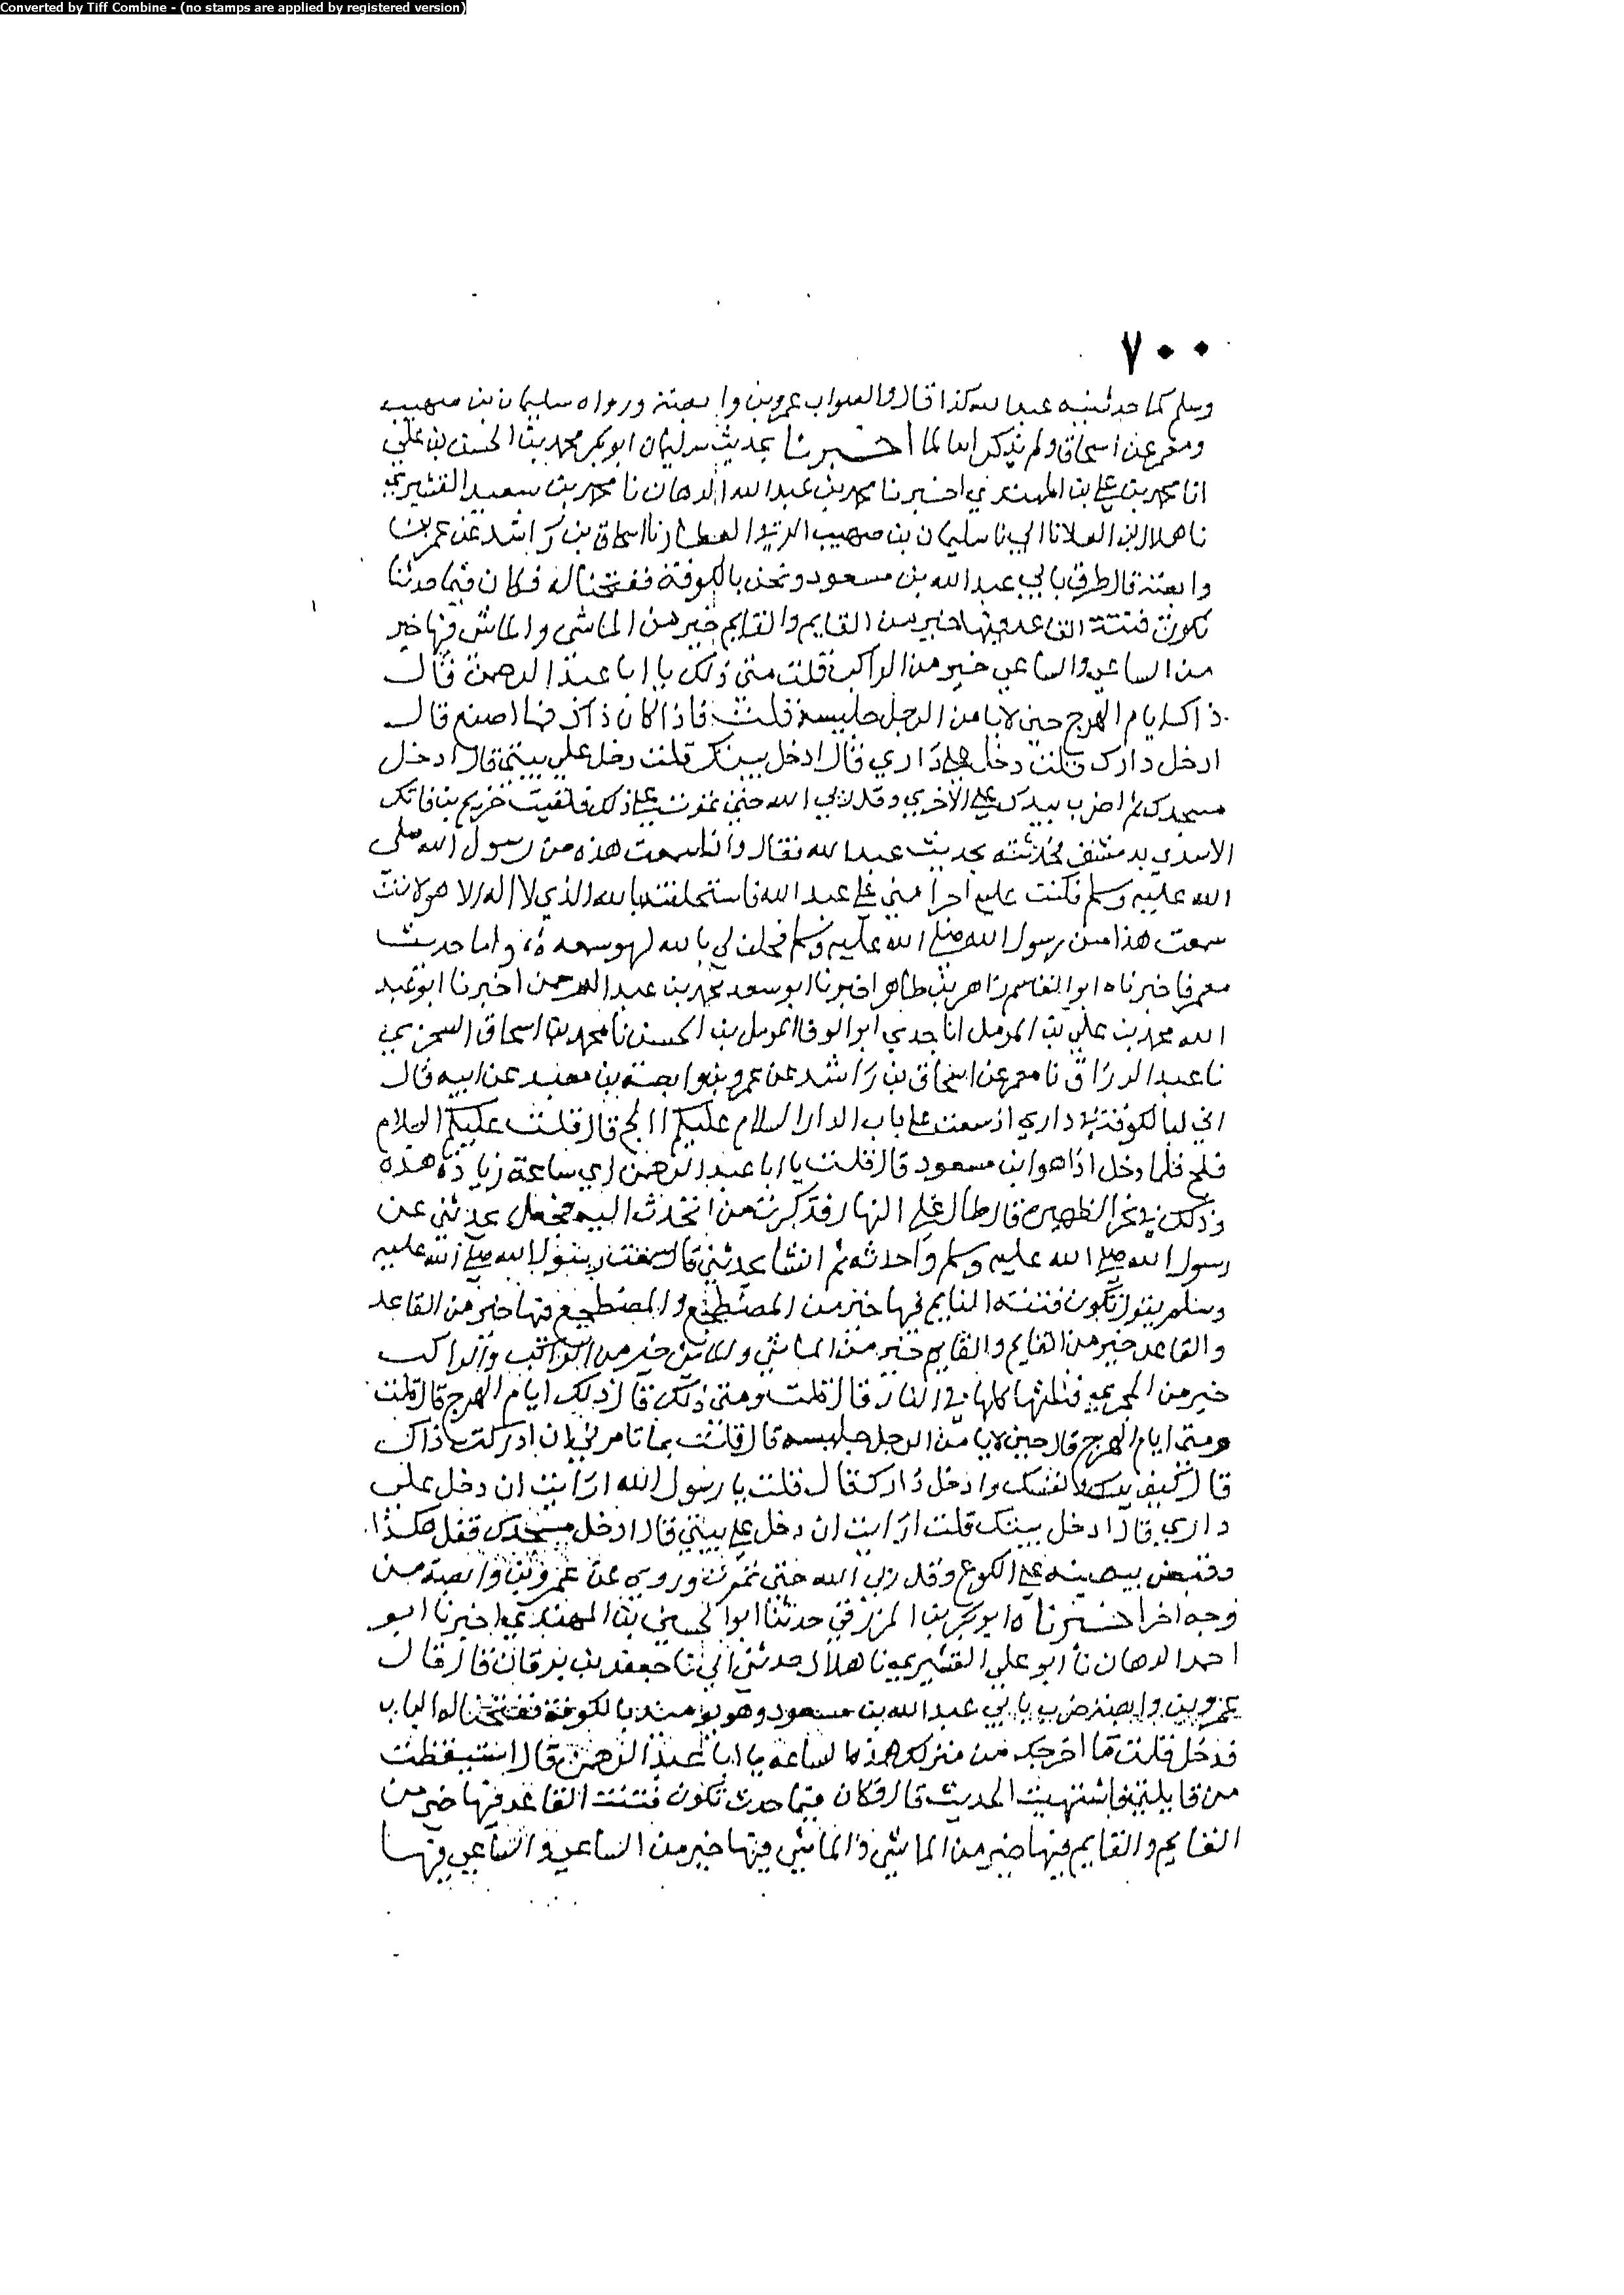 Converted by Tiff Combine - (no stamps are applied by registered version)
٧٠٠
وسلم كما حدثنيه عبد الله كذا قال والصواب عمرو بن وابصة ورواه سليمان بن صهيب
ومعمر عن اسحاق ولم يذكرا سالما اخبرنا بحديث سليمان ابو بكر محمد بن الحسن بن علي
انا محمد بن علي بن المهتدي اخبرنا محمد بن عبد الله الدهان نا محمد بن سعيد القشيري
نا هلال بن العلا نا ابي نا سليمان بن صهيب العطار نا اسحاق بن راشد عن عمرو بن
وابصة قال طرق بابي عبد الله بن مسعود ونحن بالكوفة ففتحنا له فكان فيما حدثنا
تكون فتنة القاعد فيها خير من القايم والقايم خير من الماشي والماشي فيها خير
من الساعي والساعي خير من الراكب قلت متى ذلك يا ابا عبد الرحمن قال
ذاك ايام الهرج حين لا يامن الرجل جليسه قلت فاذا كان ذاك فما اصنع قال
ادخل دارك قلت دخل علي داري قال ادخل بيتك قلت دخل علي بيتي قال ادخل
مسجدك ثم اضرب بيدك على الاخري وقل ربي الله حتى تموت على ذلك فلقيت خريم بن فاتك
الاسدي بدمشق فحدثته بحديث عبد الله فقال وانا سمعت هذه من رسول الله صلى
الله عليه وسلم فكنت عليه اجرا مني على عبد الله فاستحلفته بالله الذي لا اله الا هو لانت
سمعت هذا من رسول الله صلى الله عليه وسلم فحلف لي بالله لهو سمعه ه واما حديث
معمر فاخبرناه ابو القاسم زاهر بن طاهر اخبرنا ابو سعد محمد بن عبد الرحمن اخبرنا ابو عبد
الله محمد بن علي بن المومل انا جدي ابو الوفا المومل بن الحسن نا محمد بن اسحاق السجزي
نا عبد الرزاق نا معمر عن اسحاق بن راشد عن عمرو بن وابصة بن معبد عن ابيه قال
اني لبالكوفة في داري اذ سمعت على باب الدار السلام عليكم االج قال قلت عليكم السلام
فلج فلما دخل اذا هو ابن مسعود قال قلت يا ابا عبد الرحمن اي ساعة زيارة هذه
وذلك في نحر الظهيرة قال طال علي النهار فذكرت من اتحدث اليه فجعل يحدثني عن
رسول الله صلى الله عليه وسلم واحدثه ثم انشا يحدثني قال سمعت رسول الله صلى الله عليه
وسلم يقول تكون فتنة النايم فيها خير من المضطجع والمضطجع فيها خير من القاعد
والقاعد خير من القايم والقايم خير من الماشي والماشي خير من الراكب والراكب
خير من المجري قتلاها كلها في النار قال قلت ومتى ذلك قال ذلك ايام الهرج قال قلت
ومتى ايام الهرج قال حين لا يامن الرجل جليسه قال قلت بما تامرني ان ادركت ذاك
قال كف يدك لنفسك وادخل دارك قال قلت يا رسول الله ارايت ان دخل على
داري قال ادخل بيتك قلت ارايت ان دخل علي بيتي قال ادخل مسجدك فقل هكذا
وقبض بيمينه على الكوع وقل ربي الله حتى تموت وروي عن عمرو بن وابصة من
وجه اخر اخبرناه ابو بكر بن المزرفي حدثنا ابو الحسين بن المهتدي اخبرنا ابو
احمد الدهان نا ابو علي القشيري نا هلال حدثني ابي نا جعفر بن برقان قال قال
عمرو بن وابصة ضرب بابي عبد الله بن مسعود وهو يومئذ بالكوفة ففتحنا له الباب
فدخل فقلت ما اخرجك من منزلك هذه الساعة يا ابا عبد الرحمن قال استيقظت
من قايلتي فاشتهيت الحديث قال وكان فيما حدث تكون فتنة القاعد فيها خير من
القايم والقايم فيها خير من الماشي والماشي فيها خير من الساعي والساعي فيها